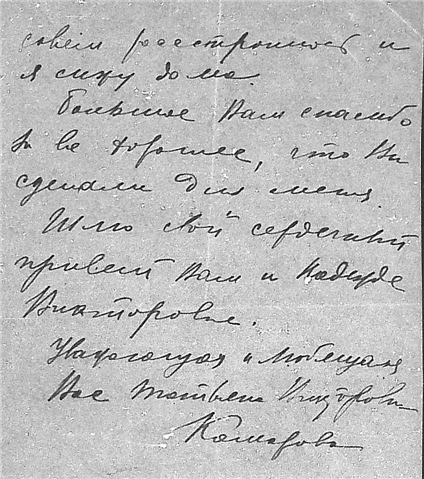 совсем расстроилось и
я сижу дома.
Большое Вам спасибо
за все хорошее, что Вы
сделали для меня.
Шлю свой сердечный
привет Вам и Надежде
Викторовне.
Уважающая и любящая
Вас Татьяна Викторовна
Комарова